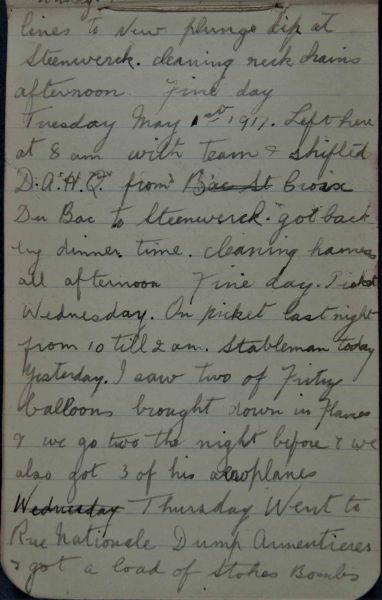 lines to New plunge dip at
Steenwerck. cleaning neck chains
afternoon. Fine day
Tuesday May 1st 1917. Left here
at 8 am with team & shifted
D.A.H.Q. from Bac St Croix
Du Bac to Steenwerck. got back
by dinner time. cleaning harness
all afternoon Fine day. Picket
Wednesday. On picket last night
from 10 till 2 am. Stableman today
Yesterday. I saw two of Fritz
balloons brought down in flames
& we go two the night before & we
also got 3 of his aeroplanes
Wednesday Thursday Went to
Rue Nationale Dump Armentieres
& got a load of Stokes Bombs